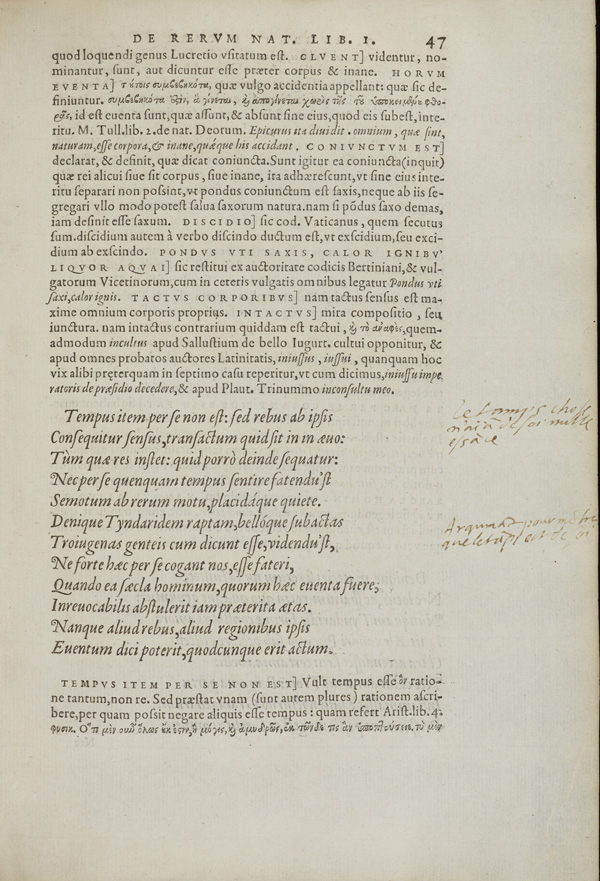 DE RERVM NAT. LIB. I. 47
quod loquendi genus Lucretio vsitatum est. CLVENT] videntur, no-
minantur, sunt, aut dicuntur esse præter corpus & inane. HORVM
EVENTA] τ τοῖς συμβεβηκότα, quæ vulgo accidentia appellant: quæ sic de-
finiuntur. συμβεβηκότα ἐστὶν, ἃ γίνεται, καὶ ἀπογίνεται χωρὶς τῆς τοῦ ὑποκειμένου φθο-
ρᾶς, id est euenta sunt, quæ assunt, & absunt sine eius, quod eis subest, inte-
ritu. M. Tull. lib. 2. de nat. Deorum. Epicurus ita diuidit. omnium, quæ sint,
naturam, esse corpora, & inane, quæque his accidant. CONIVNCTVM EST]
declarat, & definit, quæ dicat coniuncta. Sunt igitur ea coniuncta (inquit)
quæ rei alicui siue sit corpus, siue inane, ita adhærescunt, vt sine eius inte-
ritu separari non possint, vt pondus coniunctum est saxis, neque ab iis se-
gregari vllo modo potest salua saxorum natura. nam si põdus saxo demas,
iam definit esse saxum. DISCIDIO] sic cod. Vaticanus, quem secutus
sum. discidium autem à verbo discindo ductum est, vt exscidium, seu exci-
dium ab exscindo. PONDVS VTI SAXIS, CALOR IGNIBV'
LIQVOR AQVAI] sic restitui ex auctoritate codicis Bertiniani, & vul-
gatorum Vicetinorum, cum in ceteris vulgatis omnibus legatur Pondus vti
saxi, calor ignis. TACTVS CORPORIBVS] nam tactus sensus est ma-
xime omnium corporis proprius. INTACTVS] mira compositio, seu
iunctura. nam intactus contrarium quiddam est tactui, καὶ τὸ ἀναφὲς, quem-
admodum incultus apud Sallustium de bello Iugurt. cultui opponitur, &
apud omnes probatos auctores Latinitatis, iniussus, iussui, quanquam hoc
vix alibi præterquam in septimo casu reperitur, vt cum dicimus, iniussu impe
ratoris de præsidio decedere, & apud Plaut. Trinummo inconsultu meo.
Tempus item per se non est: sed rebus ab ipsis
Consequitur sensus, transactum quid sit in in æuo:
Tùm quæ res instet: quid porrò deinde sequatur:
Nec per se quenquam tempus sentire fatendu'st
Semotum ab rerum motu, placidáque quiete.
Denique Tyndaridem raptam, bellóque subactas
Troiugenas genteis cum dicunt esse, videndu'st,
Ne forte hæc per se cogant nos, esse fateri,
Quando ea sæcla hominum, quorum hæc euenta fuere,
Inreuocabilis abstulerit iam præterita ætas.
Nanque aliud rebus, aliud regionibus ipsis
Euentum dici poterit, quodcunque erit actum.
TEMPVS ITEM PER SE NON EST] Vult tempus esse ὂν ratio-
ne tantum, non re. Sed præstat vnam (sunt autem plures) rationem ascri-
bere, per quam possit negare aliquis esse tempus: quam refert Arist. lib. 4.
φυσικ. Ὅτι μὲν οὖν ὅλως οὐκ ἔστιν, ἢ μόγις, καὶ ἀμυδρῶς, ἐκ τῶνδε τις ἂν ὑποπτεύσειε. τὸ μὲν